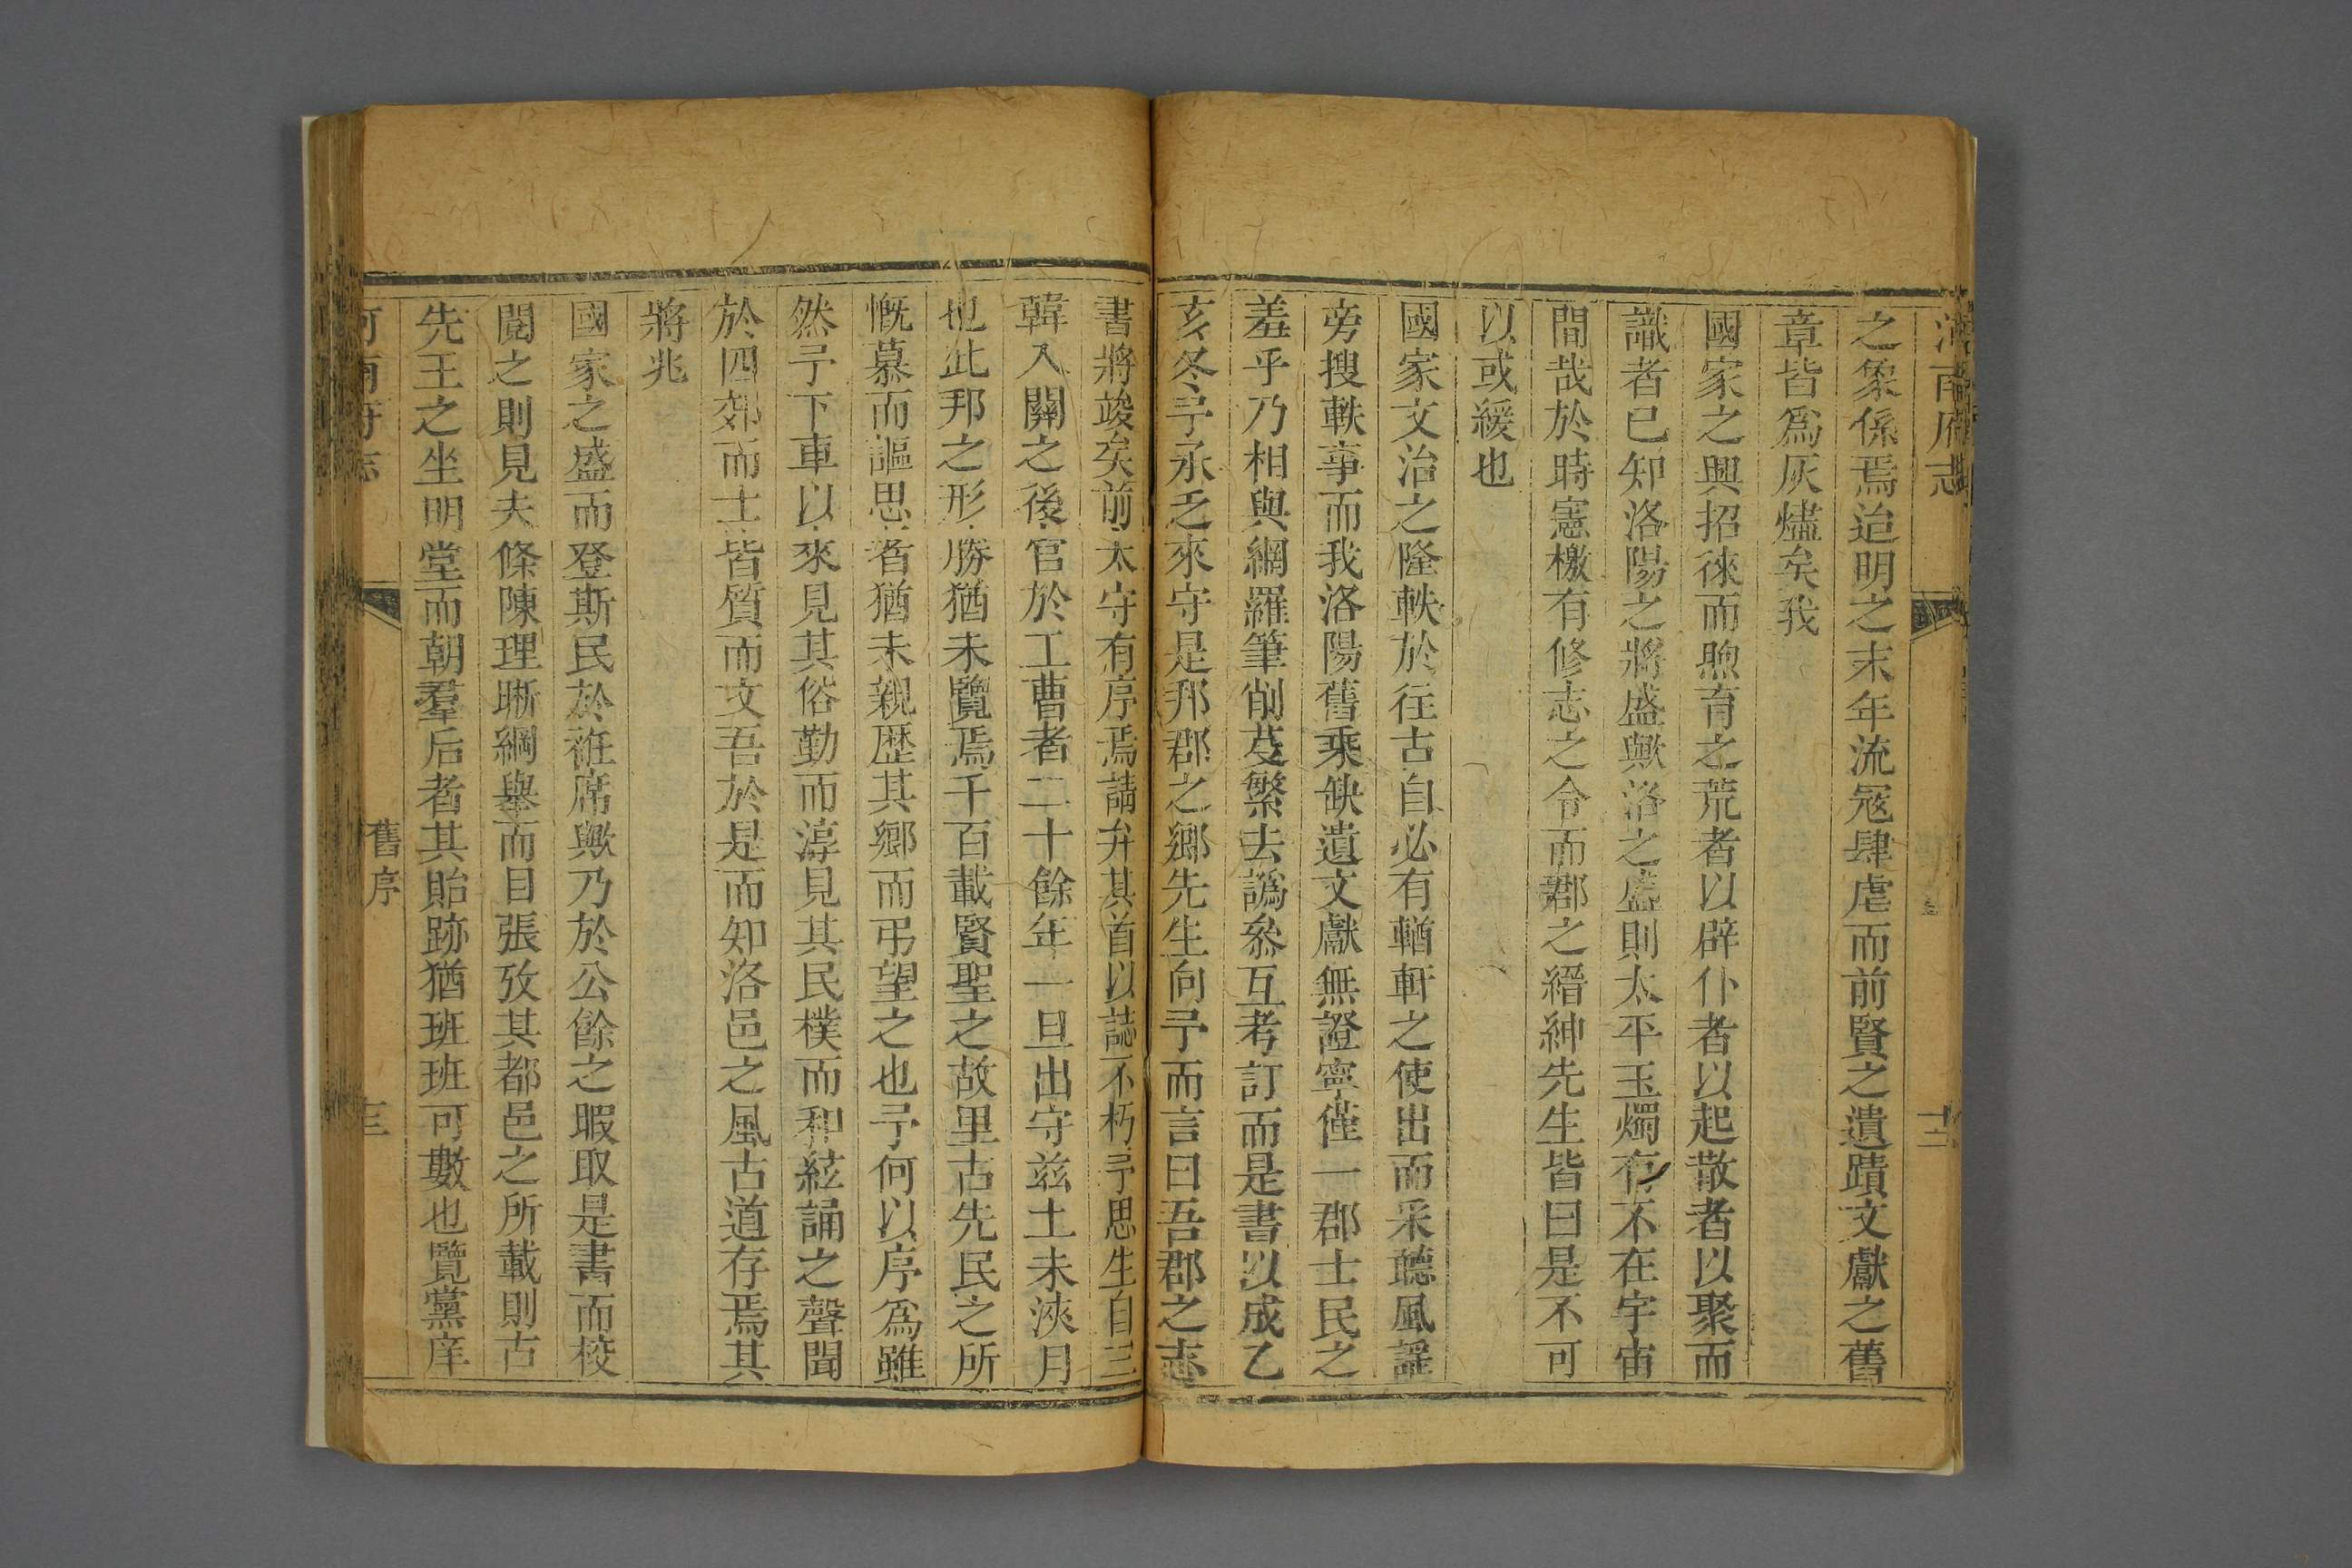 河南府志
十二
之象係焉迨明之末年流冦肆虐而前賢之遺蹟文獻之舊
章皆爲灰燼矣我
國家之興招徠而煦育之荒者以辟仆者以起散者以聚而
識者已知洛陽之將盛歟洛之盛則太平玉燭有不在宇宙
間哉於時憲檄有修志之令而郡之縉紳先生皆曰是不可
以或緩也
國家文治之隆軼於往古自必有輶軒之使出而采聽風謠
旁搜軼事而我洛陽舊乘缺遺文獻無證寧僅一郡士民之
羞乎乃相與網羅筆削芟繁去譌叅互考訂而是書以成乙
亥冬予承乏來守是邦郡之鄉先生向予而言曰吾郡之志
書將竣矣前太守有序焉請弁其首以誌不朽予思生自三
韓入關之後官於工曹者二十餘年一旦出守兹土未浹月
也此邦之形勝猶未覽焉千百載賢聖之故里古先民之所
慨慕而謳思者猶未親歷其鄉而弔望之也予何以序爲雖
然予下車以來見其俗勤而淳見其民樸而和絃誦之聲聞
於四郊而士皆質而文吾於是而知洛邑之風古道存焉其
將兆
國家之盛而登斯民於袵席歟乃於公餘之暇取是書而校
閱之則見夫條陳理晰綱舉而目張攷其都邑之所載則古
先王之坐明堂而朝羣后者其貽跡猶班班可數也覽黨庠
河南府志
舊序